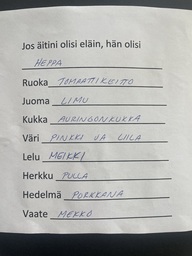 Jos äitini olisi eläin, hän olisi
HEPPA
Ruoka TOMAATTIKEITTO
Juoma LIMU
Kukka AURINGONKUKKA
Väri PINKKI JA LIILA
Lelu MEIKKI
Herkku PULLA
Hedelmä PORKKANA
Vaate MEKKO